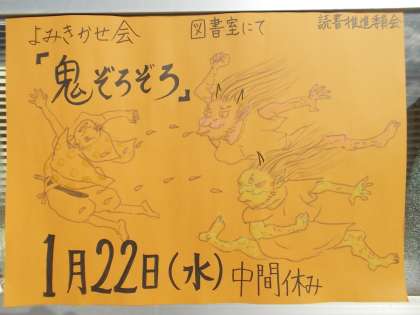 よみきかせ会
図書室にて
読書推進委員会
「鬼ぞろぞろ」
1月22日(水)中間休み